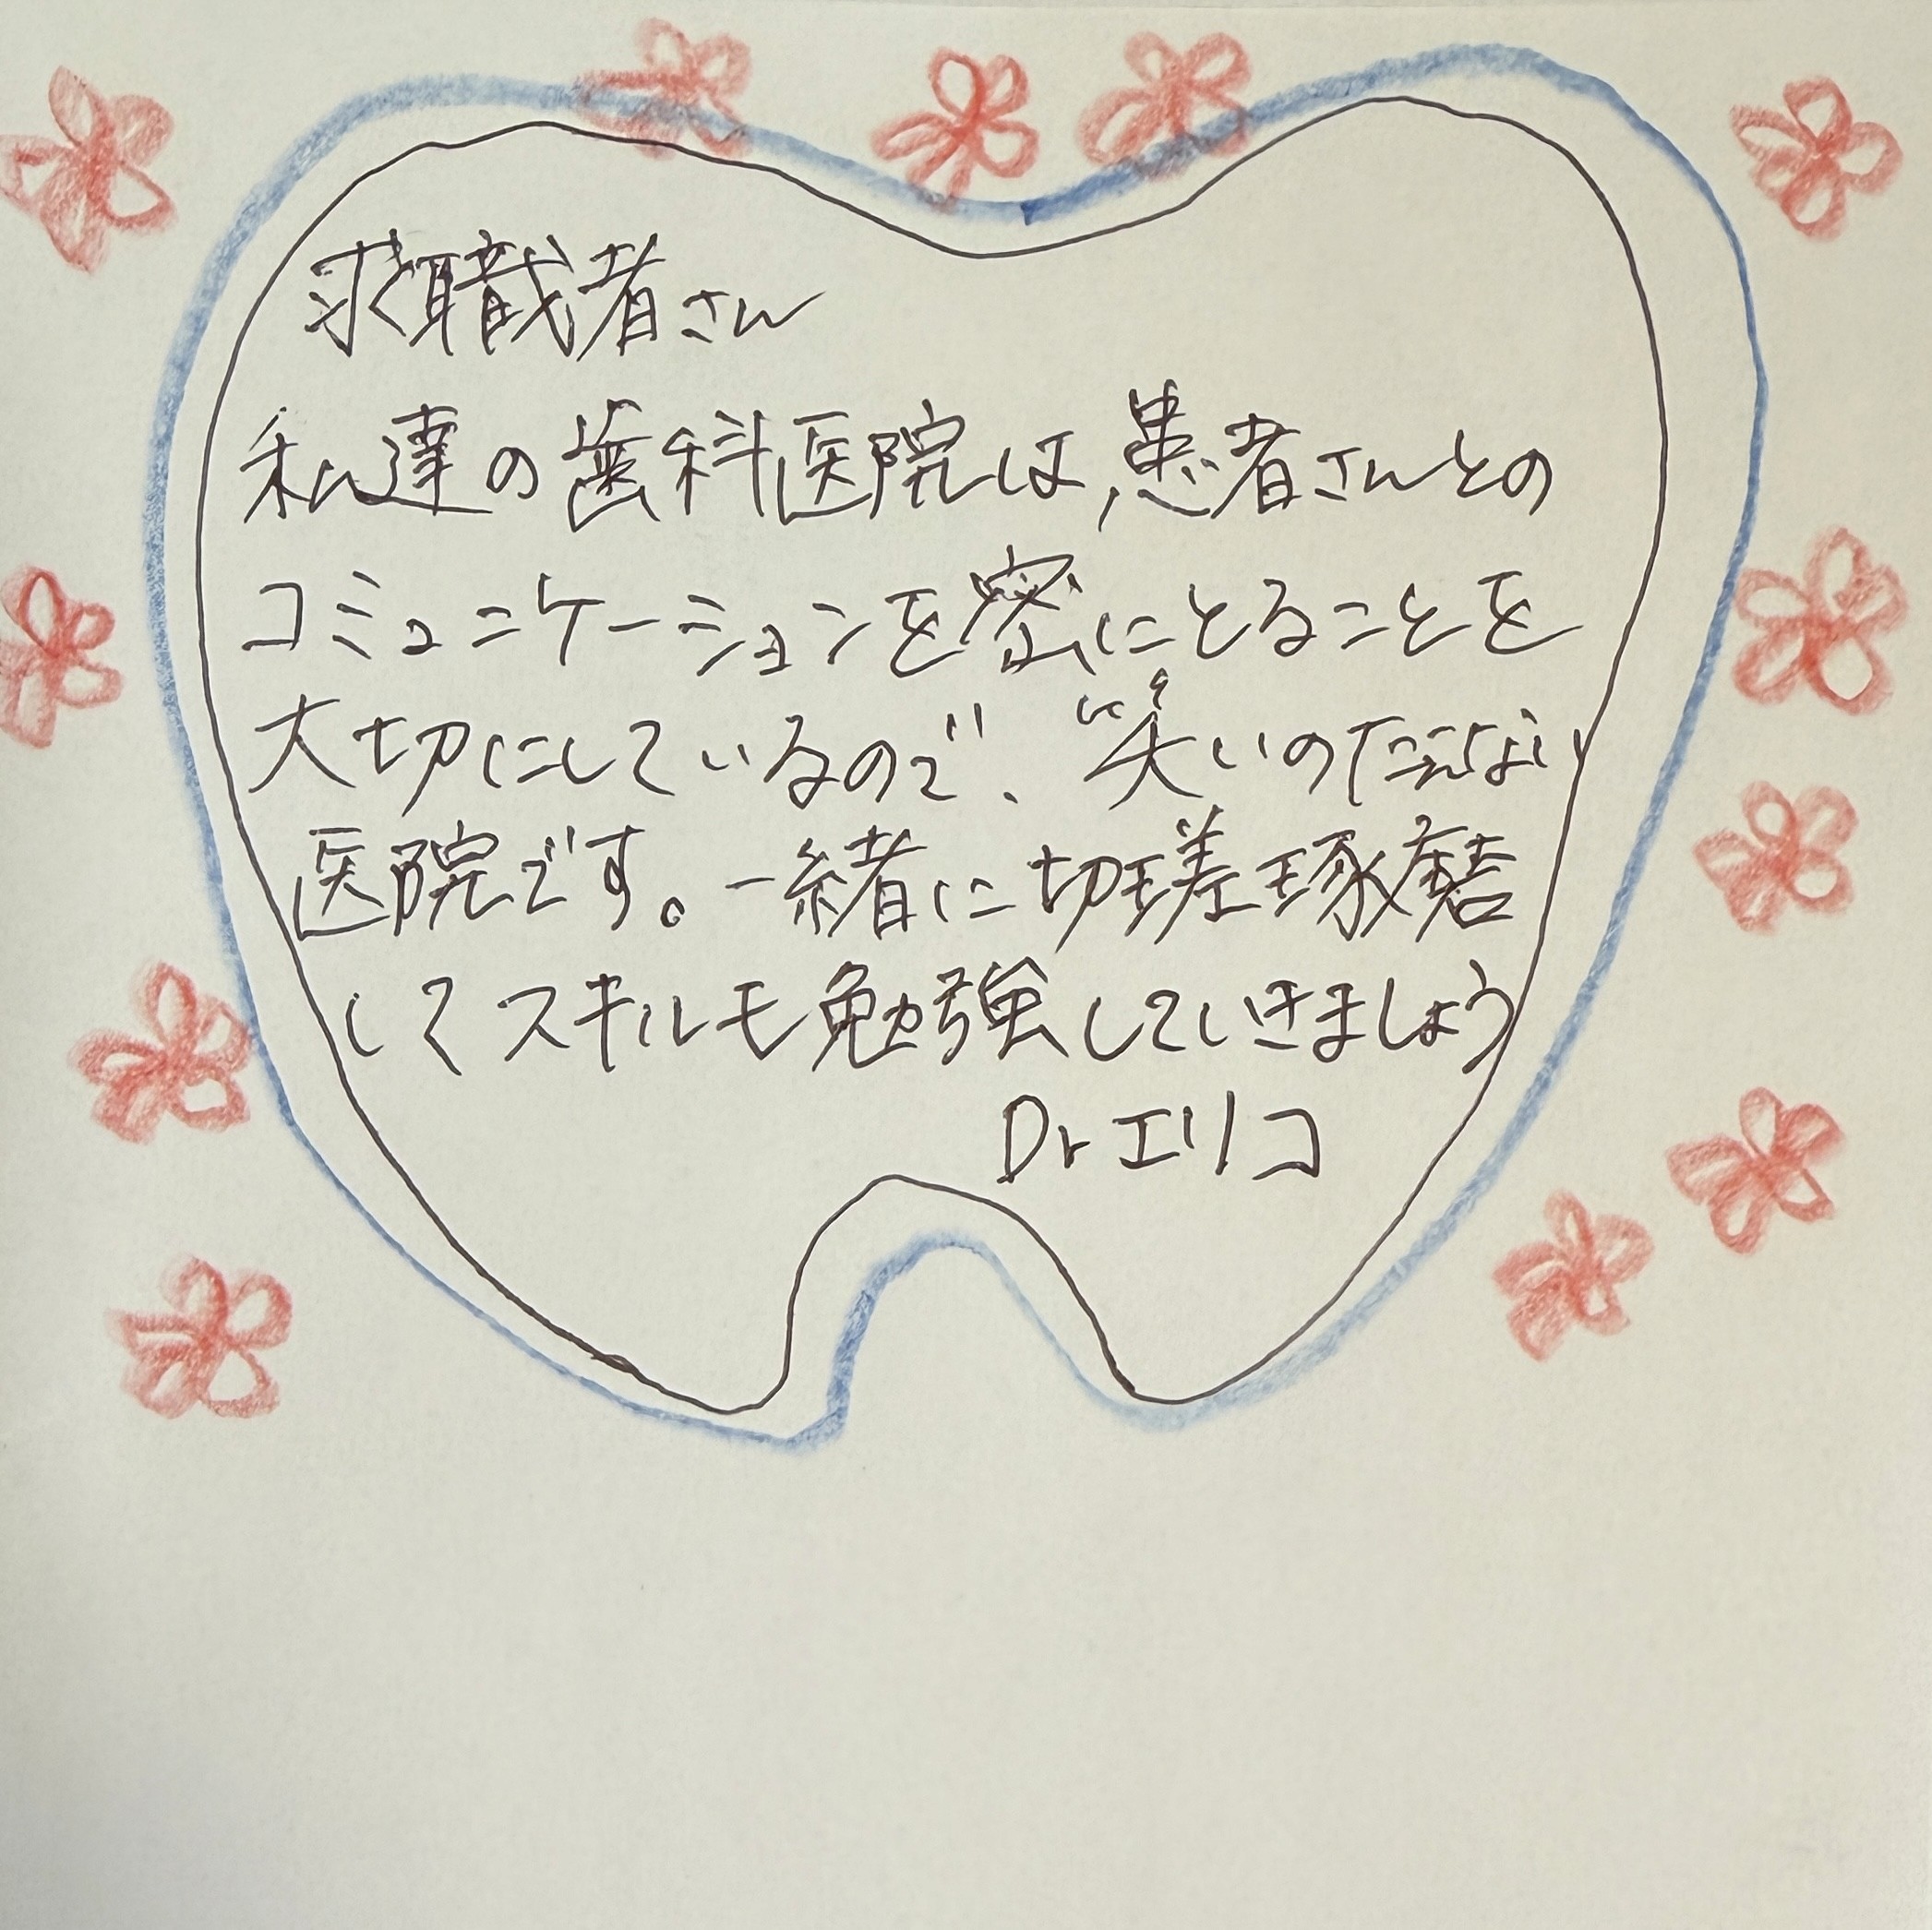 求職者さん
私達の歯科医院は,患者さんとの
コミュニケーションを密にとることを
大切にしているので、笑いのたえない
医院です。一緒に切磋琢磨
してスキルも勉強していきましょう
Dr エリコ